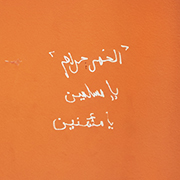 "الخمر حرام"
يا مسلمين
يا مثقفين